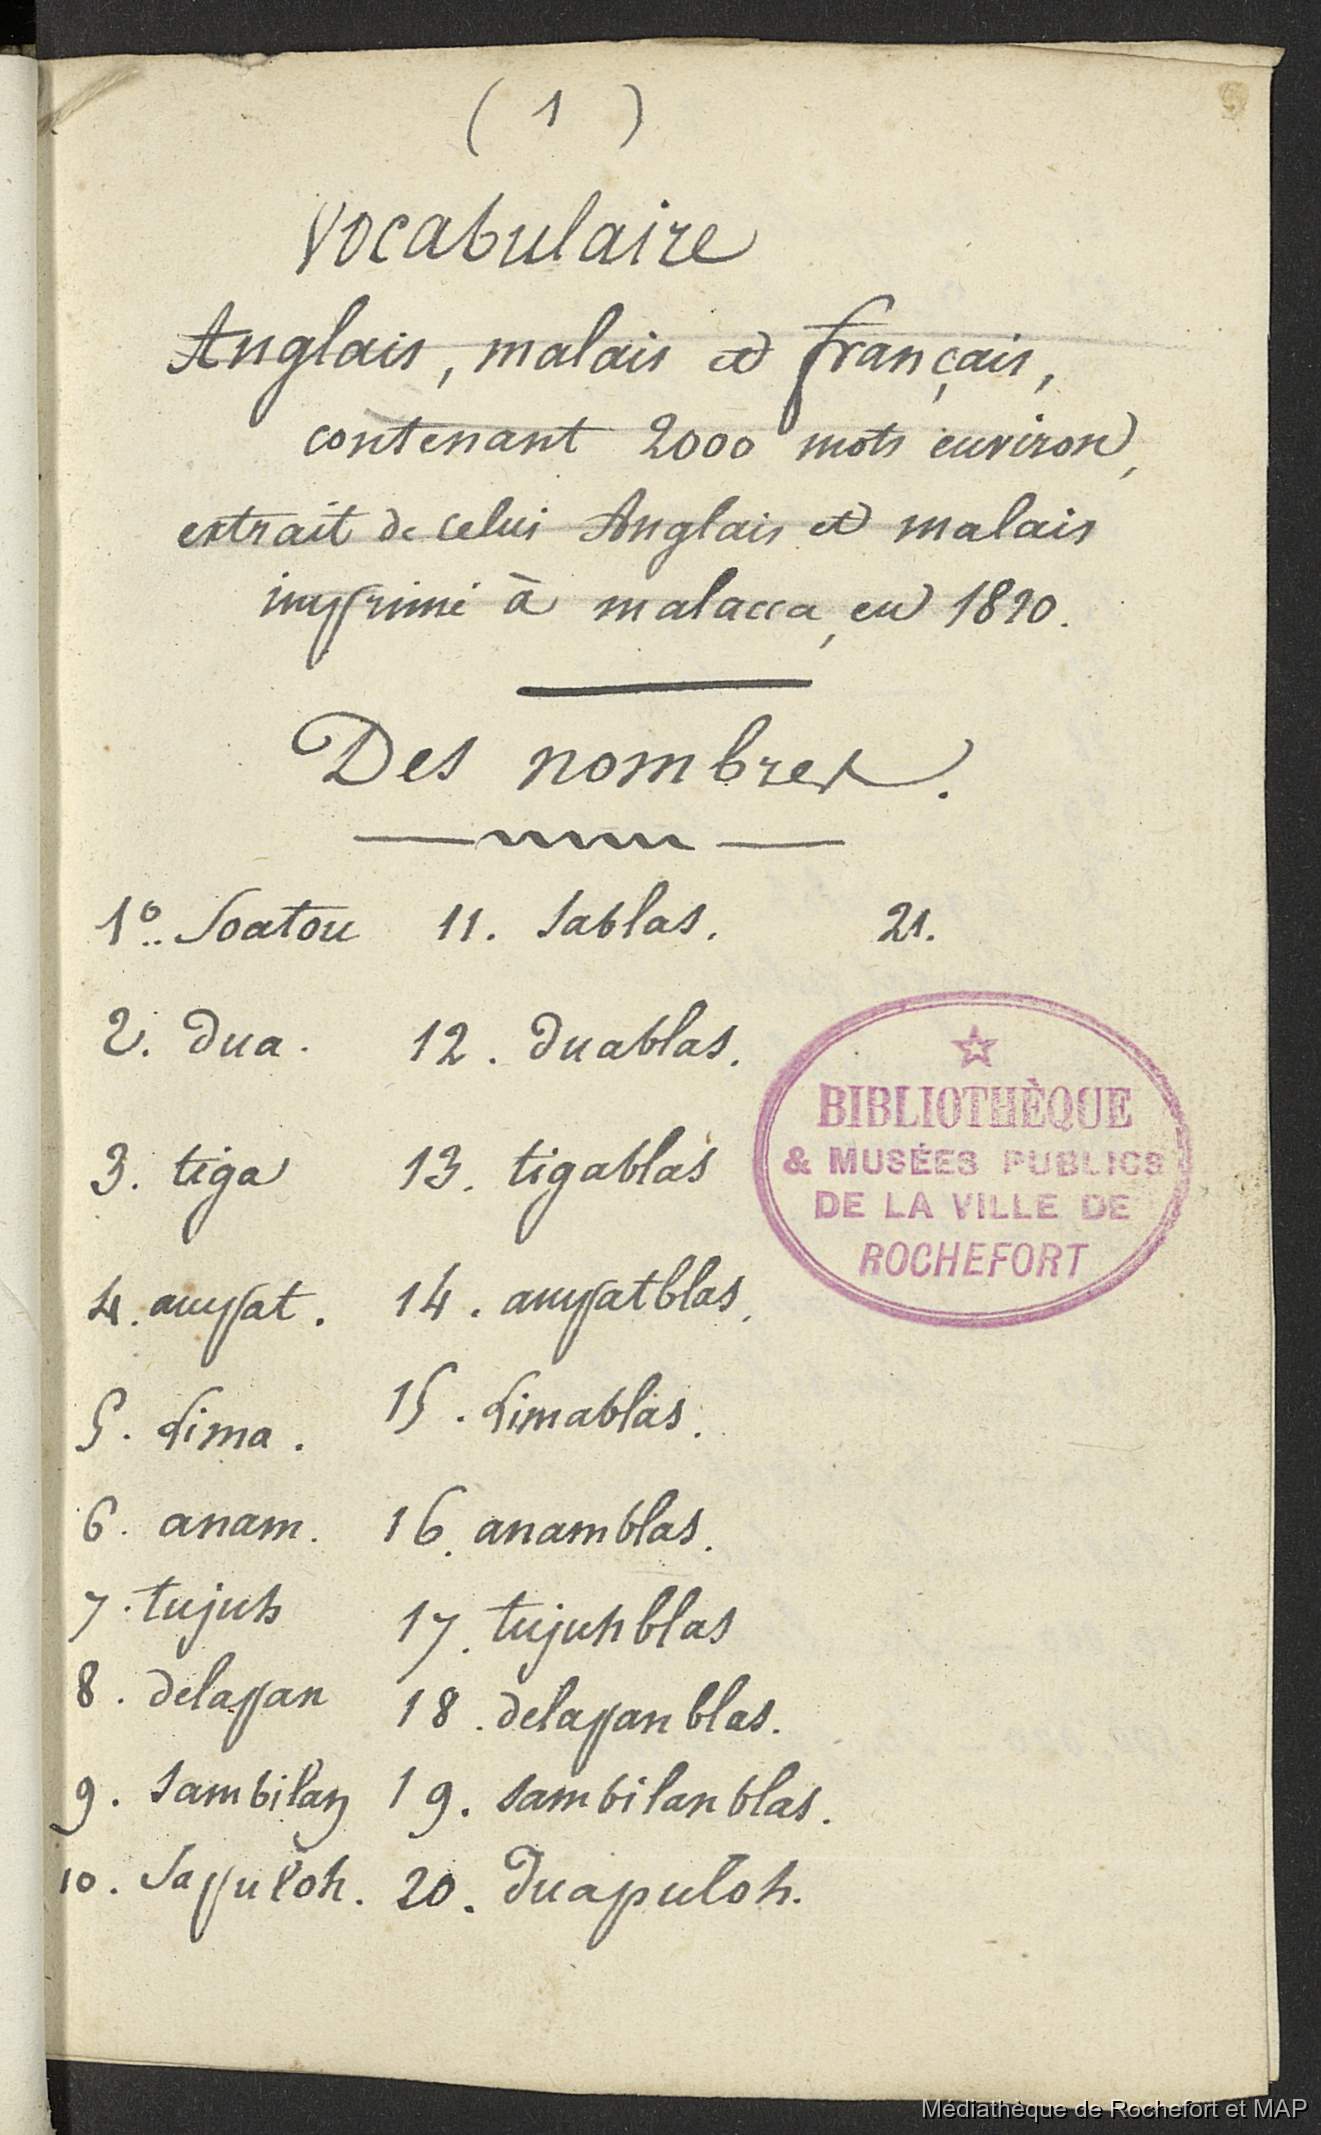 ( 1 )
Vocabulaire
Anglais, malais et français,
contenant 2000 mots environ,
extrait de celui Anglais et malais
imprimé à malacca, en 1820.
Des nombres.
1º. Soatou 11. Sablas. 21.
2. dua. 12. duablas.
3. tiga 13. tigablas
4. ampat. 14. ampatblas.
5. Lima. 15. Limablas.
6. anam. 16. anamblas.
7. tujuh 17. tujuhblas
8. delapan 18. delapanblas.
9. Sambilan 19. Sambilanblas.
10. Sapuloh. 20. Duapuloh.
BIBLIOTHÈQUE
& MUSÉES PUBLICS
DE LA VILLE DE
ROCHEFORT
Médiathèque de Rochefort et MAP